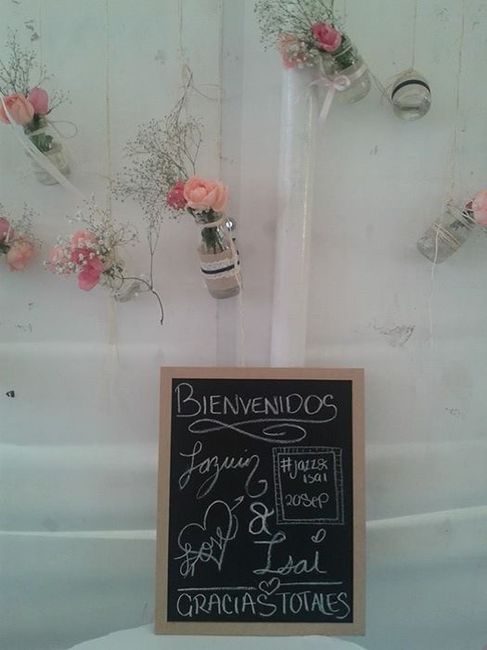 BIENVENIDOS
Jazmin
#jazz&
isai
20SEP
&
Love
Isai
GRACIAS TOTALES